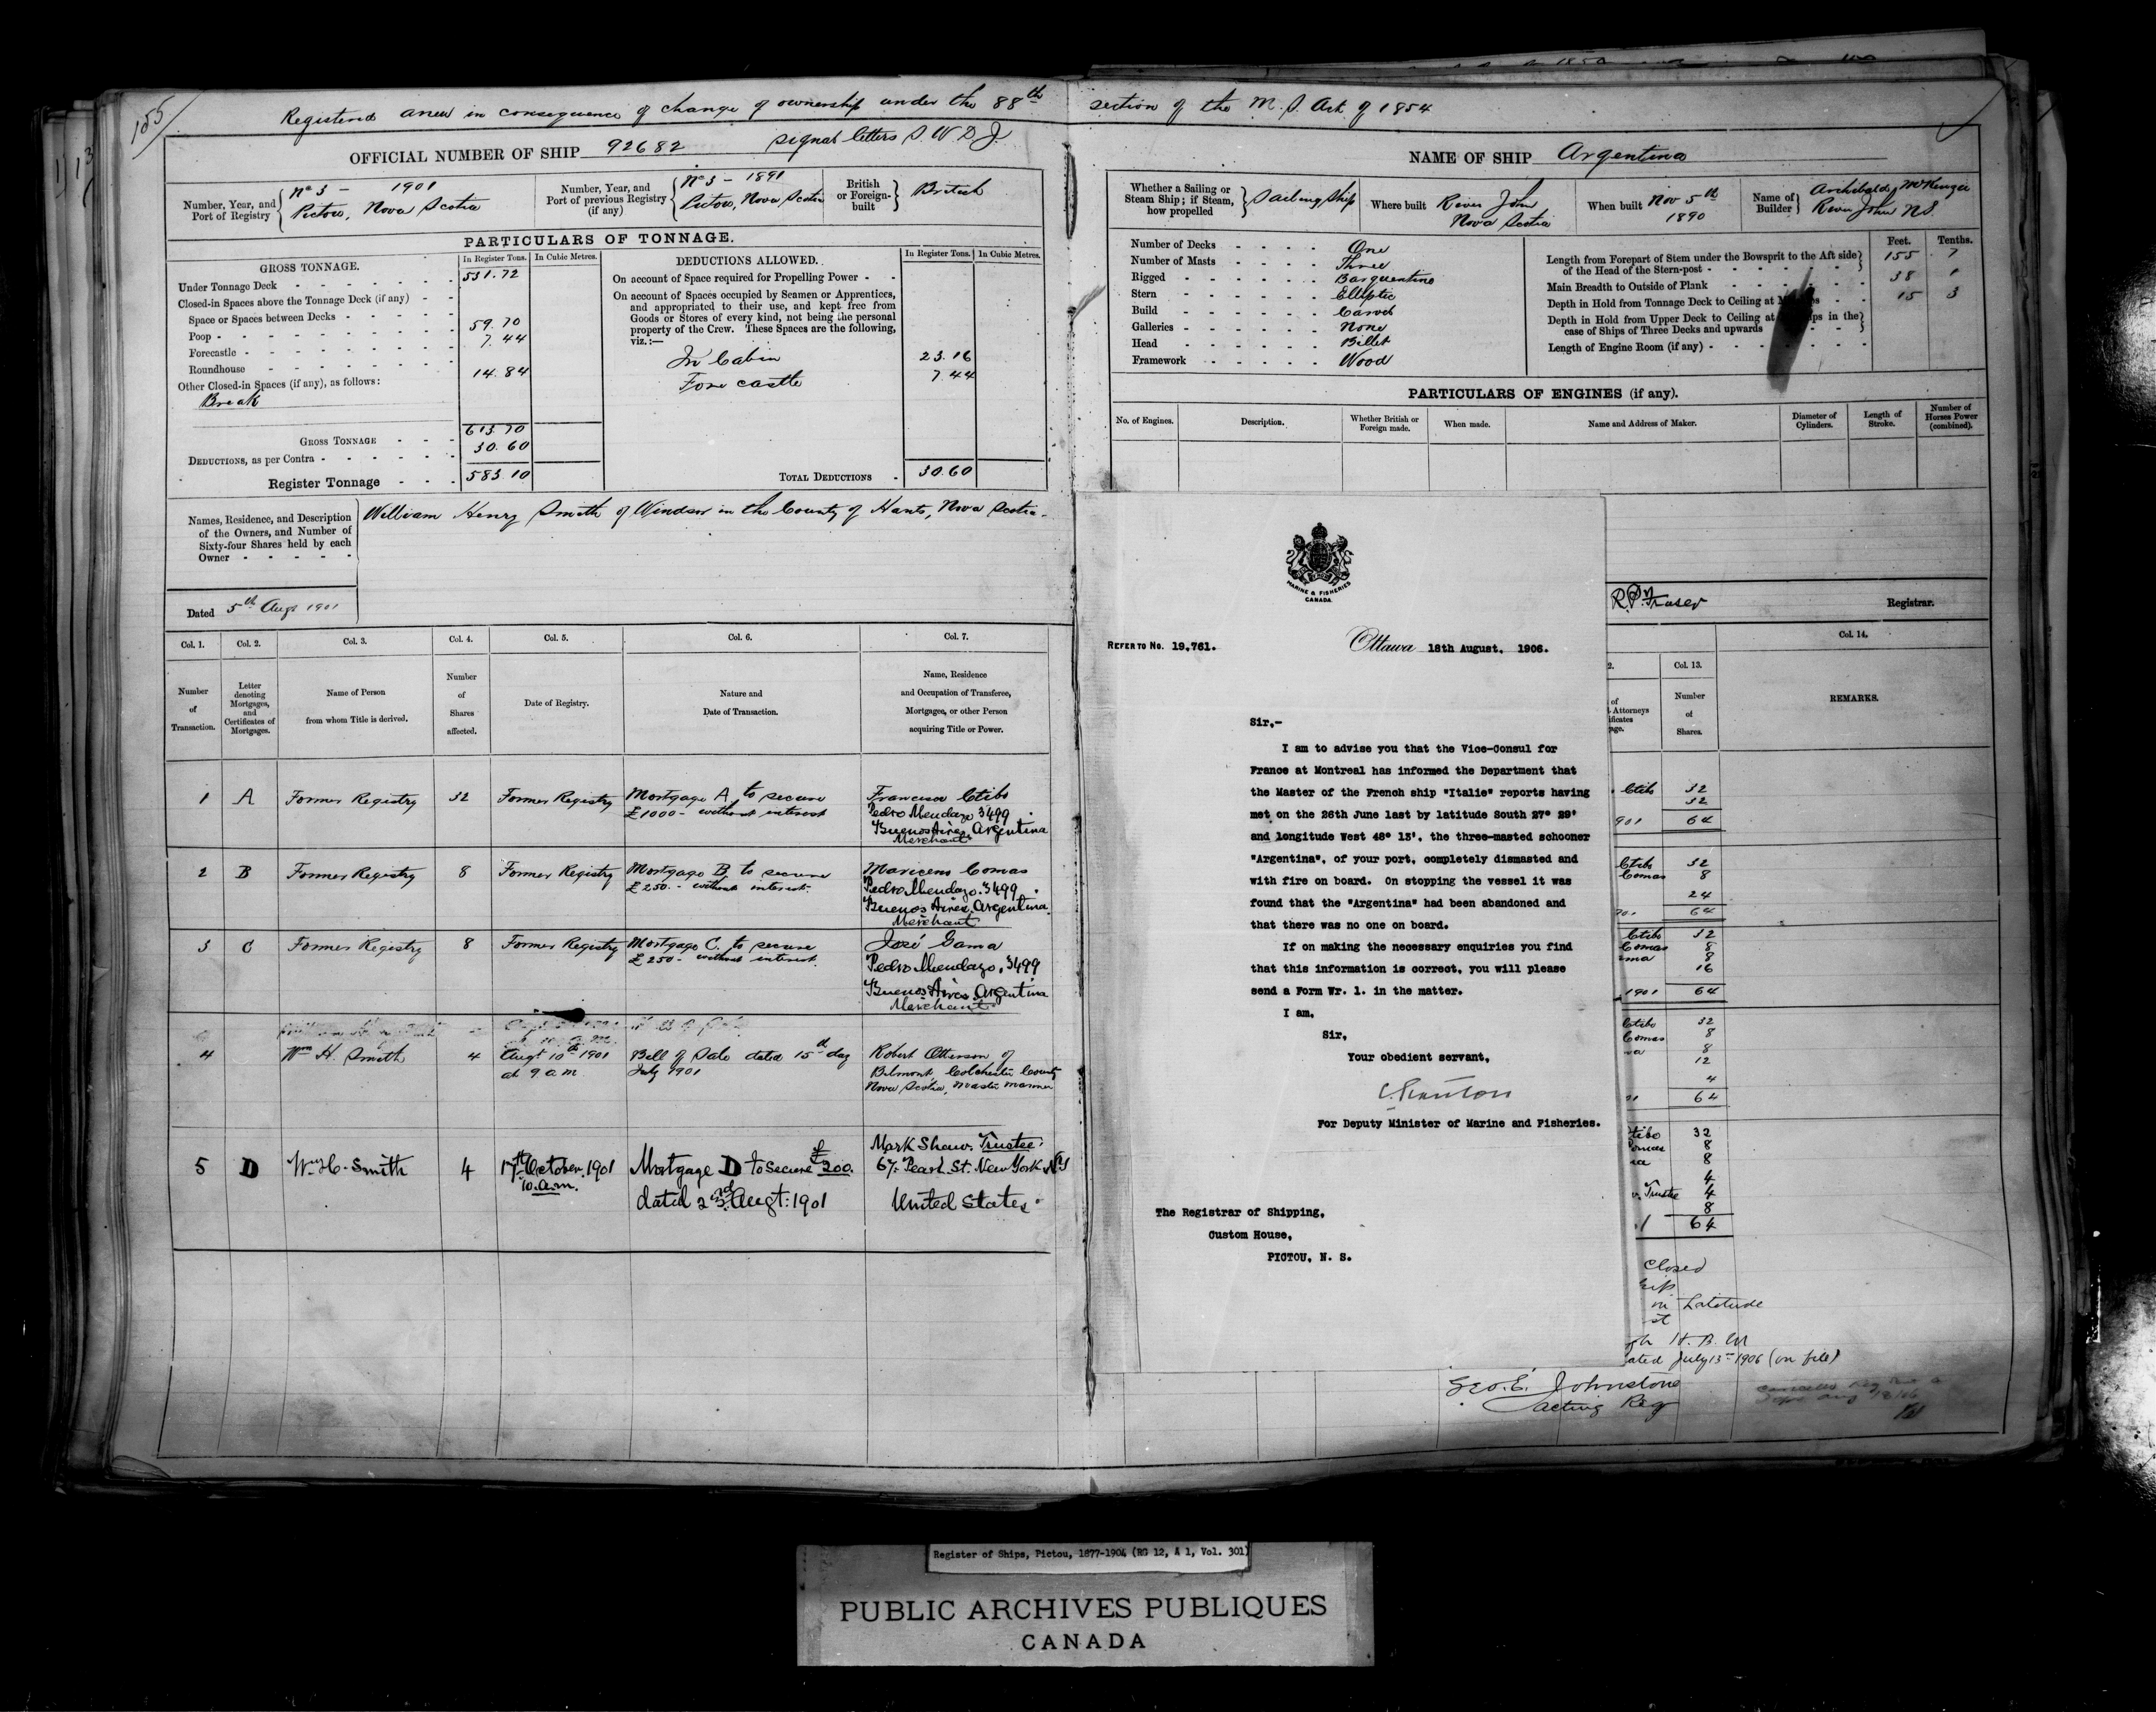 155
Registered anew in consequence of change of ownership under the 88th section of the M. S. Act of 1854
OFFICIAL NUMBER OF SHIP 92682 signal letters S. W. D. J.
Number, Year, and Port of Registry
No 3 - 1901
Pictou, Nova Scotia
Number, Year, and Port of previous Registry (if any)
No 3 - 1891
Pictou, Nova Scotia
British or Foreign-built
British
PARTICULARS OF TONNAGE.
GROSS TONNAGE. In Register Tons. In Cubic Metres.
Under Tonnage Deck 531.72
Closed-in Spaces above the Tonnage Deck (if any)
Space or Spaces between Decks
Poop 59.70
Forecastle 7.44
Roundhouse
Other Closed-in Spaces (if any), as follows: 14.84
Break
GROSS TONNAGE 613.70
DEDUCTIONS, as per Contra 30.60
Register Tonnage 583.10
DEDUCTIONS ALLOWED. In Register Tons. In Cubic Metres.
On account of Space required for Propelling Power
On account of Spaces occupied by Seamen or Apprentices,
and appropriated to their use, and kept free from
Goods or Stores of every kind, not being the personal
property of the Crew. These Spaces are the following,
viz.:—
In Cabin 23.16
Fore castle 7.44
TOTAL DEDUCTIONS 30.60
Names, Residence, and Description
of the Owners, and Number of
Sixty-four Shares held by each
Owner
William Henry Smith of Windsor in the County of Hants, Nova Scotia.
Dated 5th Augt 1901
Col. 1. Col. 2. Col. 3. Col. 4. Col. 5. Col. 6. Col. 7.
Number of Transaction.
Letter denoting Mortgages, and Certificates of Mortgages.
Name of Person from whom Title is derived.
Number of Shares affected.
Date of Registry.
Nature and Date of Transaction.
Name, Residence and Occupation of Transferee, Mortgagee, or other Person acquiring Title or Power.
1 A Former Registry 32 Former Registry Mortgage A to secure
£1000 - without interest
Francisca Ctibo
Pedro Mendazo 3499
Buenos Aires Argentina
Merchant
2 B Former Registry 8 Former Registry Mortgage B to secure
£250. - without interest.
Comas
Pedro Mendazo. 3499.
Buenos Aires. Argentina.
Merchant
3 C Former Registry 8 Former Registry Mortgage C. to secure
£250 - without interest.
José Gama
Pedro Mendazo. 3499
Buenos Aires. Argentina
Merchant
4 Wm H. Smith 4 Augt 10th 1901
at 9 a.m.
Bill of Sale dated 15th day
July 1901
Robert Otterson of
Belmont Colchester County
Nova Scotia, Master Mariner
5 D Wm H. Smith 4 17th October. 1901
10. a.m.
Mortgage D to secure £200.
dated 23rd Augt: 1901
Mark Shaw. Trustee
67. Pearl. St. New York
United States.
NAME OF SHIP Argentina
Whether a Sailing or Steam Ship; if Steam, how propelled
Sailing Ship
Where built River John
Nova Scotia
When built Nov 5th
1890
Name of Builder
Archibald McKenzie
River John N.S.
Number of Decks One
Number of Masts Three
Rigged Barquentine
Stern Elliptic
Build Carvel
Galleries None
Head Billet
Framework Wood
Feet. Tenths.
Length from Forepart of Stem under the Bowsprit to the Aft side
of the Head of the Stern-post 155 7
Main Breadth to Outside of Plank 38 1
Depth in Hold from Tonnage Deck to Ceiling at 15 3
Depth in Hold from Upper Deck to Ceiling at in the
case of Ships of Three Decks and upwards
Length of Engine Room (if any)
PARTICULARS OF ENGINES (if any).
No. of Engines. Description. Whether British or Foreign made. When made. Name and Address of Maker. Diameter of Cylinders. Length of Stroke. Number of Horses Power (combined).
MARINE & FISHERIES
CANADA
REFER TO No. 19,761.
Ottawa 18th August, 1906.
Sir,-
I am to advise you that the Vice-Consul for
France at Montreal has informed the Department that
the Master of the French ship "Italie" reports having
met on the 26th June last by latitude South 27° 29'
and longitude West 48° 13', the three-masted schooner
"Argentina", of your port, completely dismasted and
with fire on board. On stopping the vessel it was
found that the "Argentina" had been abandoned and
that there was no one on board.
If on making the necessary enquiries you find
that this information is correct, you will please
send a Form Wr. 1. in the matter.
I am,
Sir,
Your obedient servant,
For Deputy Minister of Marine and Fisheries.
The Registrar of Shipping,
Custom House,
PICTOU, N. S.
Fraser Registrar.
Col. 13. Col. 14.
Number of Shares.
REMARKS.
Ctibo 32
32
901 64
Ctibo 32
Comas 8
24
64
Ctibo 32
Comas 8
8
16
1901 64
Ctibo 32
Comas 8
8
12
4
64
32
8
8
4
Trustee 4
8
64
Closed
Latitude
H. B. M
ated July 13th 1906 (on file)
Geo. E. Johnstone
acting Reg
Register of Ships, Pictou, 1877-1904 (RG 12, A 1, Vol. 301)
PUBLIC ARCHIVES PUBLIQUES
CANADA